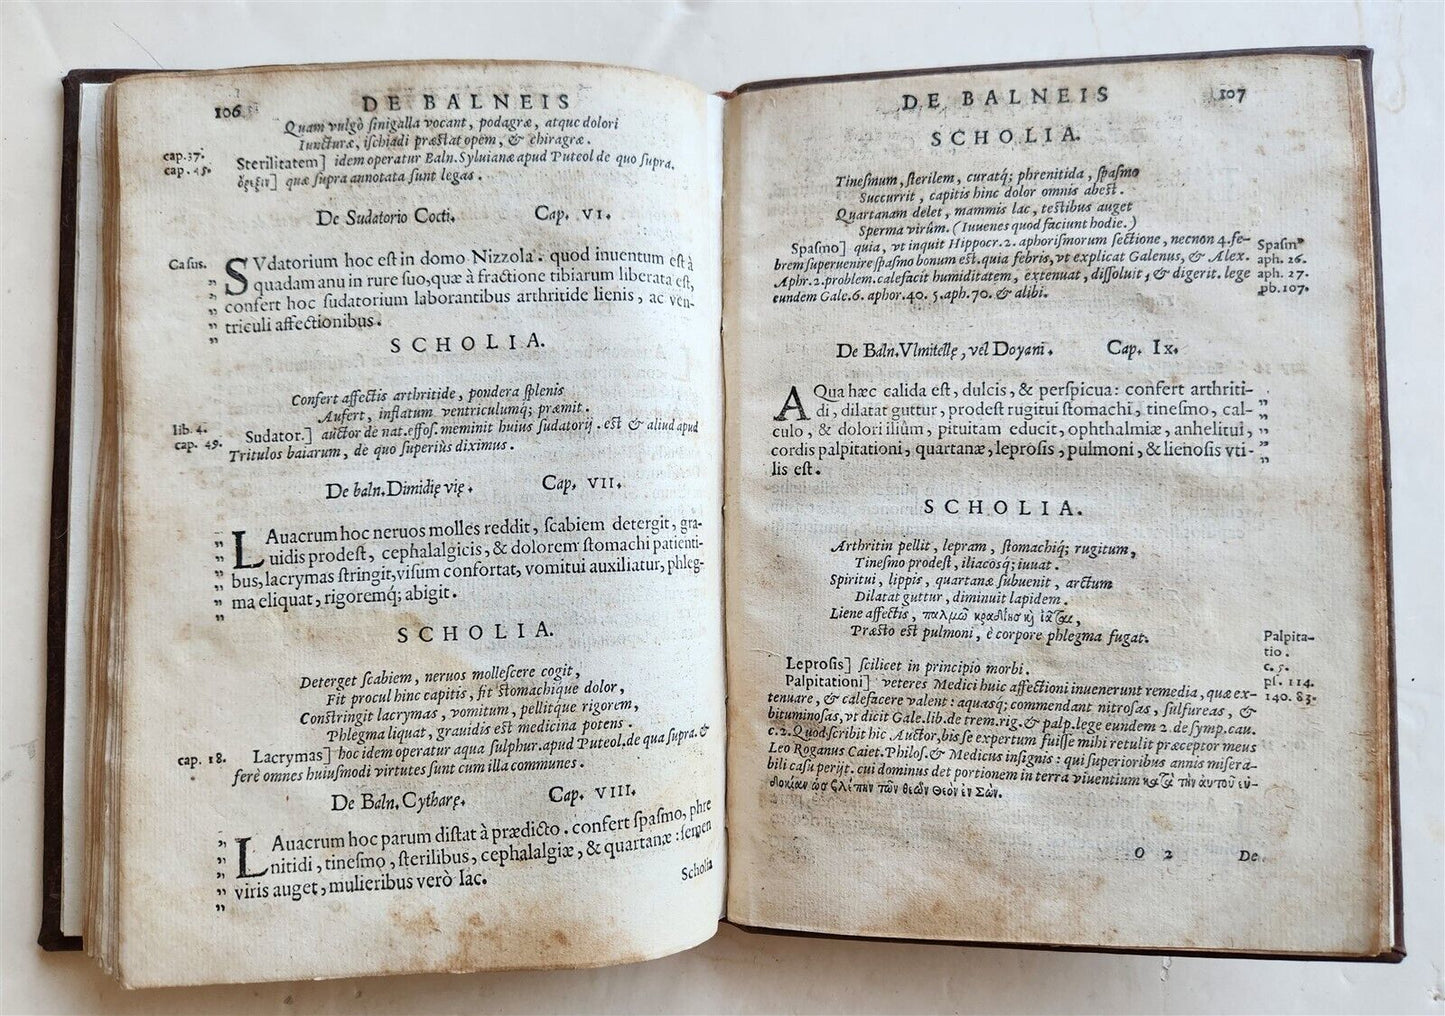 106 DE BALNEIS
Quam vulgò ſinigalla vocant, podagræ, atque dolori
Iuncturæ, iſchiadi præſtat opem, & chiragræ.
cap.37. Sterilitatem] idem operatur Baln.Syluianæ apud Puteol de quo ſupra.
cap.45. ὄρεξιν] quæ ſupra annotata ſunt legas.
De Sudatorio Cocti. Cap. VI.
Caſus. SVdatorium hoc eſt in domo Nizzola: quod inuentum eſt à
„ quadam anu in rure ſuo, quæ à fractione tibiarum liberata eſt,
„ confert hoc ſudatorium laborantibus arthritide lienis, ac ven-
„ triculi affectionibus.
„
SCHOLIA.
Confert affectis arthritide, pondera ſplenis
Aufert, inflatum ventriculumq; præmit.
lib. 4. Sudator.] auctor de nat.effoſ. meminit huius ſudatorij. eſt & aliud apud
cap. 49. Tritulos baiarum, de quo ſuperiùs diximus.
De baln.Dimidię vię. Cap. VII.
„ LAuacrum hoc neruos molles reddit, ſcabiem detergit, gra-
„ uidis prodeſt, cephalalgicis, & dolorem ſtomachi patienti-
„ bus, lacrymas ſtringit, viſum confortat, vomitui auxiliatur, phleg-
„ ma eliquat, rigoremq; abigit.
„
SCHOLIA.
Deterget ſcabiem, neruos molleſcere cogit,
Fit procul hinc capitis, fit ſtomachique dolor,
Conſtringit lacrymas, vomitum, pellitque rigorem,
Phlegma liquat, grauidis eſt medicina potens.
cap. 18. Lacrymas] hoc idem operatur aqua ſulphur.apud Puteol.de qua ſupra. &
ferè omnes huiuſmodi virtutes ſunt cum illa communes.
De Baln.Cytharę. Cap. VIII.
„ LAuacrum hoc parum diſtat à prædicto. confert ſpaſmo, phre
„ nitidi, tineſmo, ſterilibus, cephalalgiæ, & quartanæ: ſemen
„ viris auget, mulieribus verò lac.
„ Scholia
DE BALNEIS 107
SCHOLIA.
Tineſmum, ſterilem, curatq; phrenitida, ſpaſmo
Succurrit, capitis hinc dolor omnis abeſt.
Quartanam delet, mammis lac, teſtibus auget
Sperma virûm. (Iuuenes quod faciunt hodie.)
Spaſmo] quia, vt inquit Hippocr.2. aphoriſmorum ſectione, necnon 4.fe- Spaſmº
brem ſuperuenire ſpaſmo bonum eſt. quia febris, vt explicat Galenus, & Alex. aph. 26.
Aphr.2.problem.calefacit humiditatem, extenuat, diſſoluit, & digerit. lege aph. 27.
eundem Gale.6. aphor.40. 5.aph.70. & alibi. pb.107.
De Baln.Vlmitellę, vel Doyani. Cap. Ix.
AQua hæc calida eſt, dulcis, & perſpicua: confert arthriti- „
di, dilatat guttur, prodeſt rugitui ſtomachi, tineſmo, cal- „
culo, & dolori ilium, pituitam educit, ophthalmiæ, anhelitui, „
cordis palpitationi, quartanæ, leproſis, pulmoni, & lienoſis vti- „
lis eſt.
SCHOLIA.
Arthritin pellit, lepram, ſtomachiq; rugitum,
Tineſmo prodeſt, iliacosq; iuuat.
Spiritui, lippis, quartanæ ſubuenit, arctum
Dilatat guttur, diminuit lapidem.
Liene affectis, παλμῶ
Præſto eſt pulmoni, è corpore phlegma fugat.
Palpita-
tio.
Leproſis] ſcilicet in principio morbi. c. 5.
Palpitationi] veteres Medici huic affectioni inuenerunt remedia, quæ ex- pſ. 114.
tenuare, & calefacere valent: aquasq; commendant nitroſas, ſulfureas, & 140. 83.
bituminoſas, vt dicit Gale.lib.de trem.rig. & palp.lege eundem 2.de ſymp.cau.
c.2. Quod ſcribit hic Auctor, bis ſe expertum fuiſſe mihi retulit præceptor meus
Leo Roganus Caiet. Philoſ. & Medicus inſignis: qui ſuperioribus annis miſera-
bili caſu perijt. cui dominus det portionem in terra viuentium τὴν αὐτοῦ
τῶν θεῶν
O 2 De